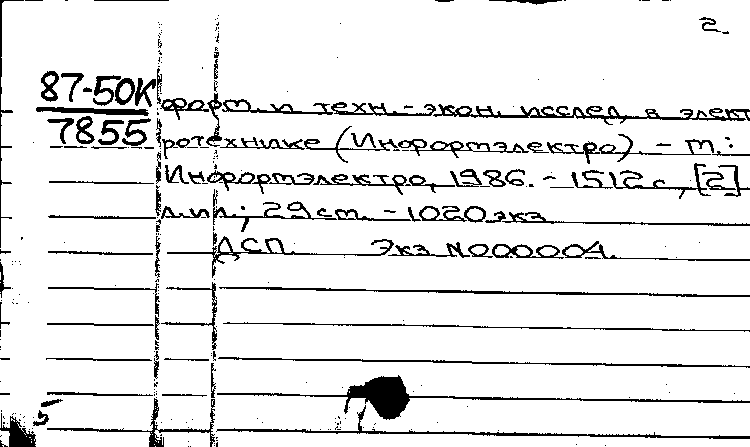 2.
87-50К
7855
форм. и техн.-экон. исслед. в элект
ротехнике (Информэлектро). - М.:
Информэлектро, 1986. - 1512 с., [2]
л.ил.; 29 см. - 1020 экз
ДСП. Экз N000004.
5